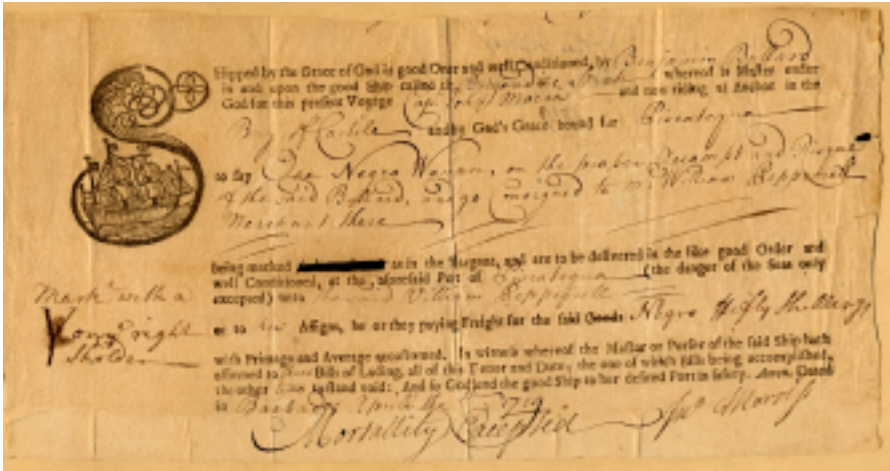 SHipped by the Grace of God in good Orer and well Conditioned, by Benjamin Bullard
in and upon the good Ship called the whereof is Master under
God for this present Voyage Cap John Moran and now riding at Anchor in the
Bay of Carlile and by God's Grace bound for Piscataqua
to say One Negro Woman, on the proper Accompt and Risque
of the said Bullard, and go Consigned to Mr William Pepperrell
Merchant there
being marked as in the Margent, and are to be delivered in the like good Order and
well Conditioned, at the aforesaid Port of Piscataqua (the danger of the Seas only
excepted) unto William Pepperrell
Markt with a
on ye right
Sholder
or to his Assigns, he or they paying Freight for the said Goods Negro Fifty Shillings
with Primage and Average accustomed. In witness whereof the Master or Purser of the said Ship hath
affirmed to Bills of Lading, all of this Tenor and Date, the one of which Bills being accomplished,
the other two to stand void: And so God send the good Ship to her desired Port in safety. Amen, Dated
in Barbados 1719
Mortallity Excepted Jno Morrols